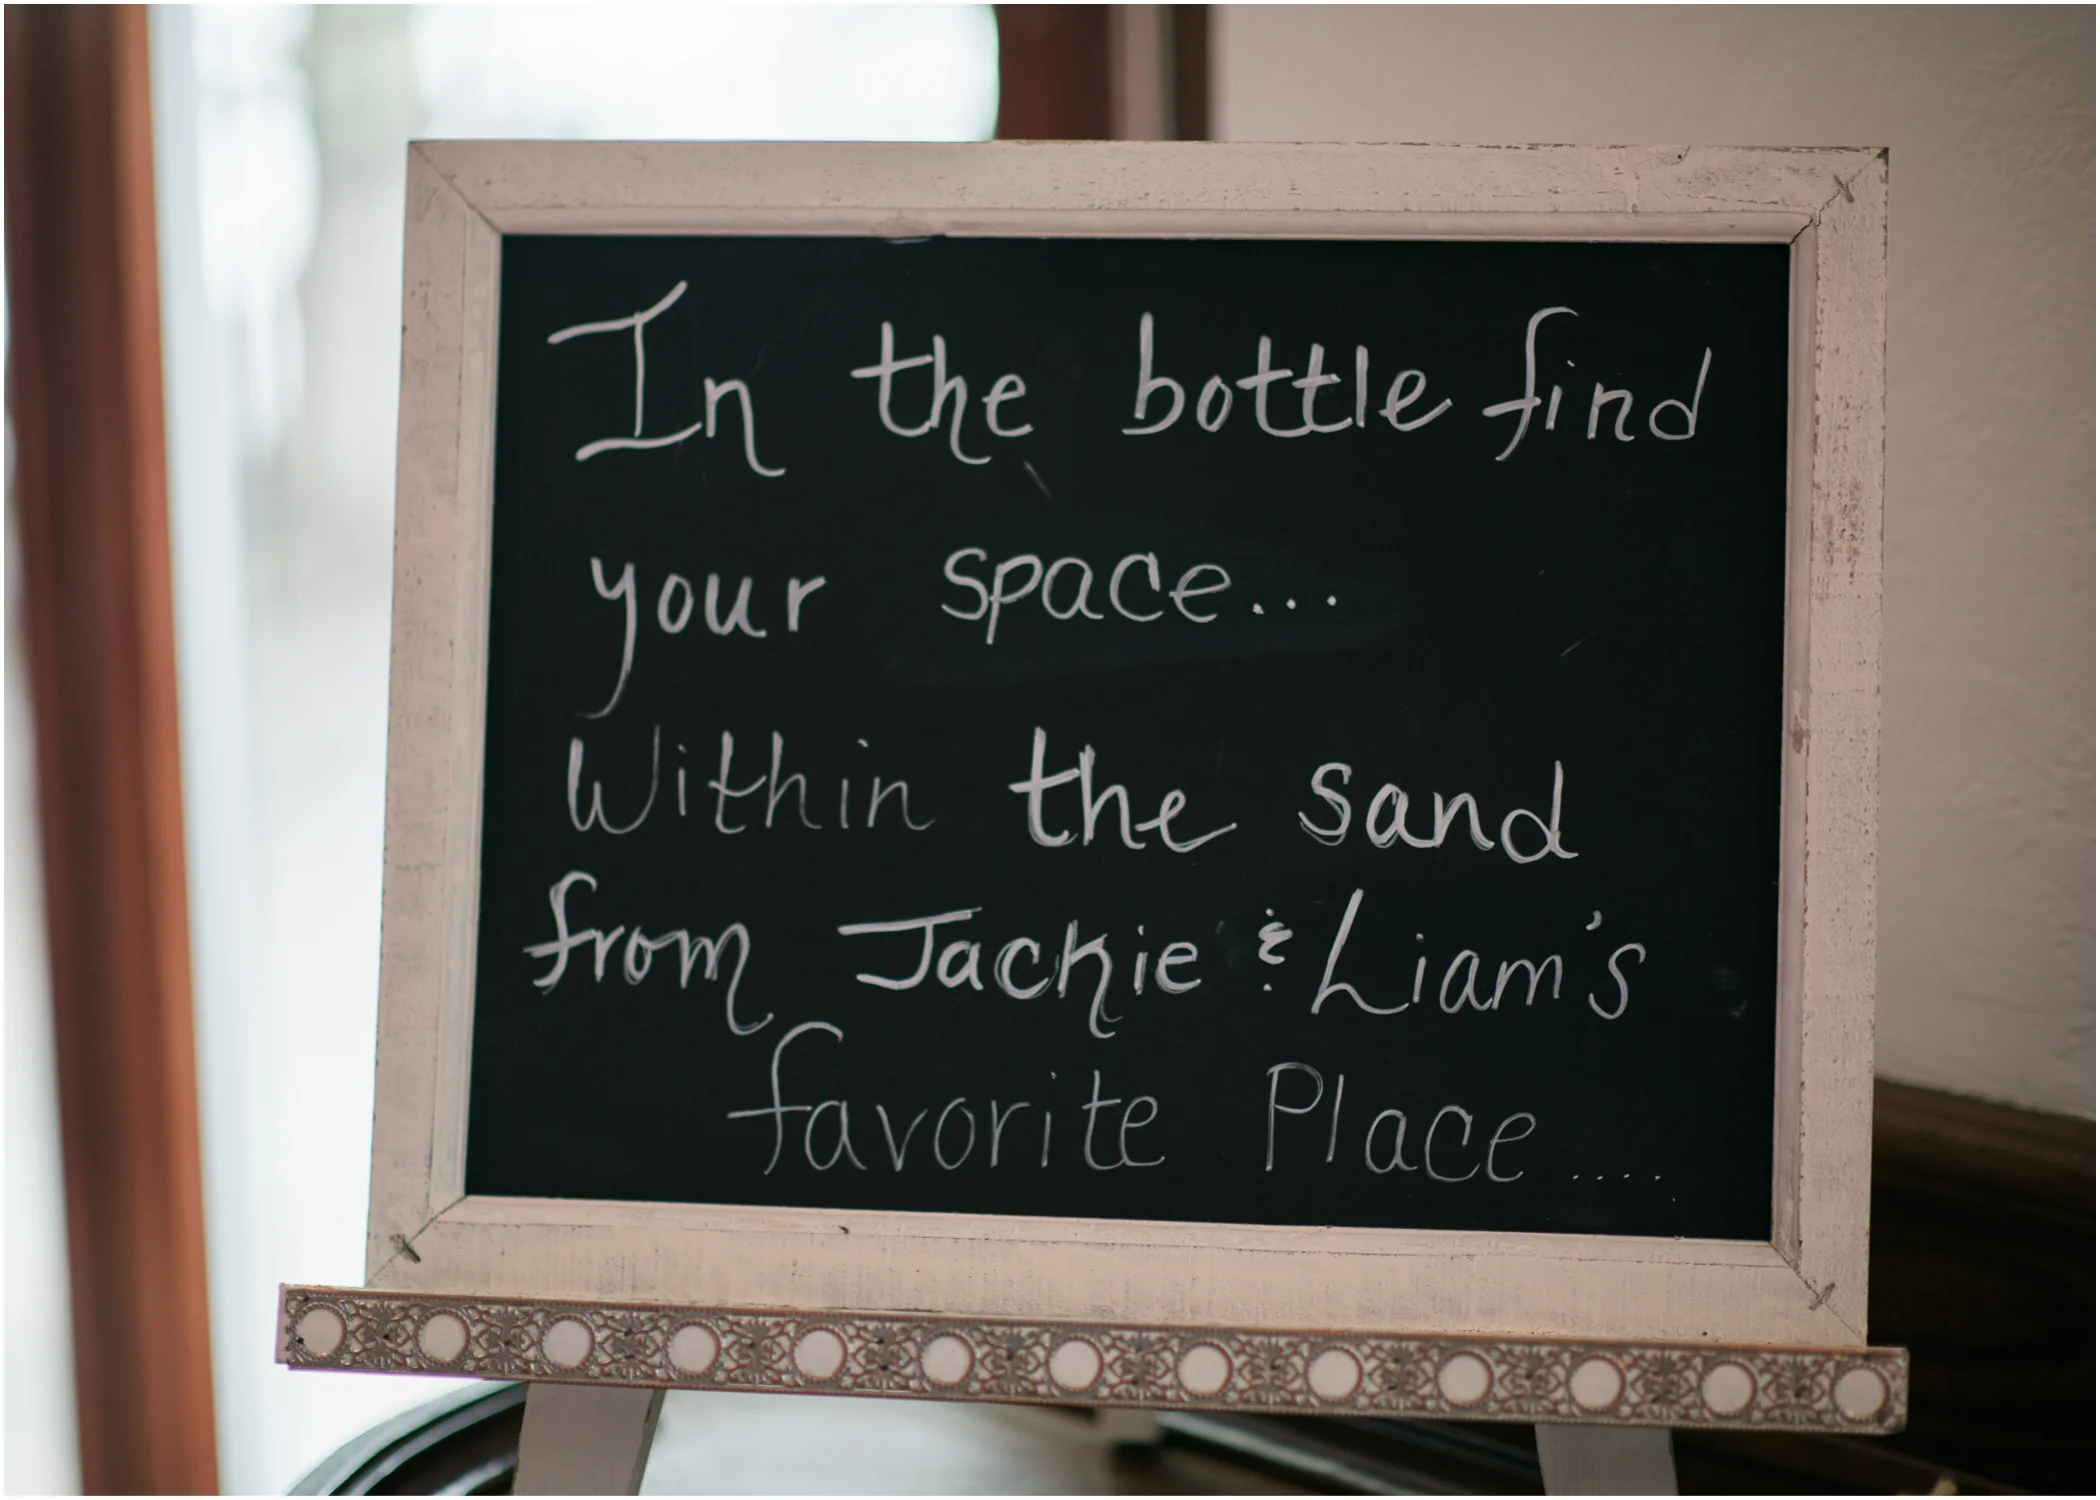 In the bottle find
your space...
Within the sand
from Jackie & Liam's
favorite Place....